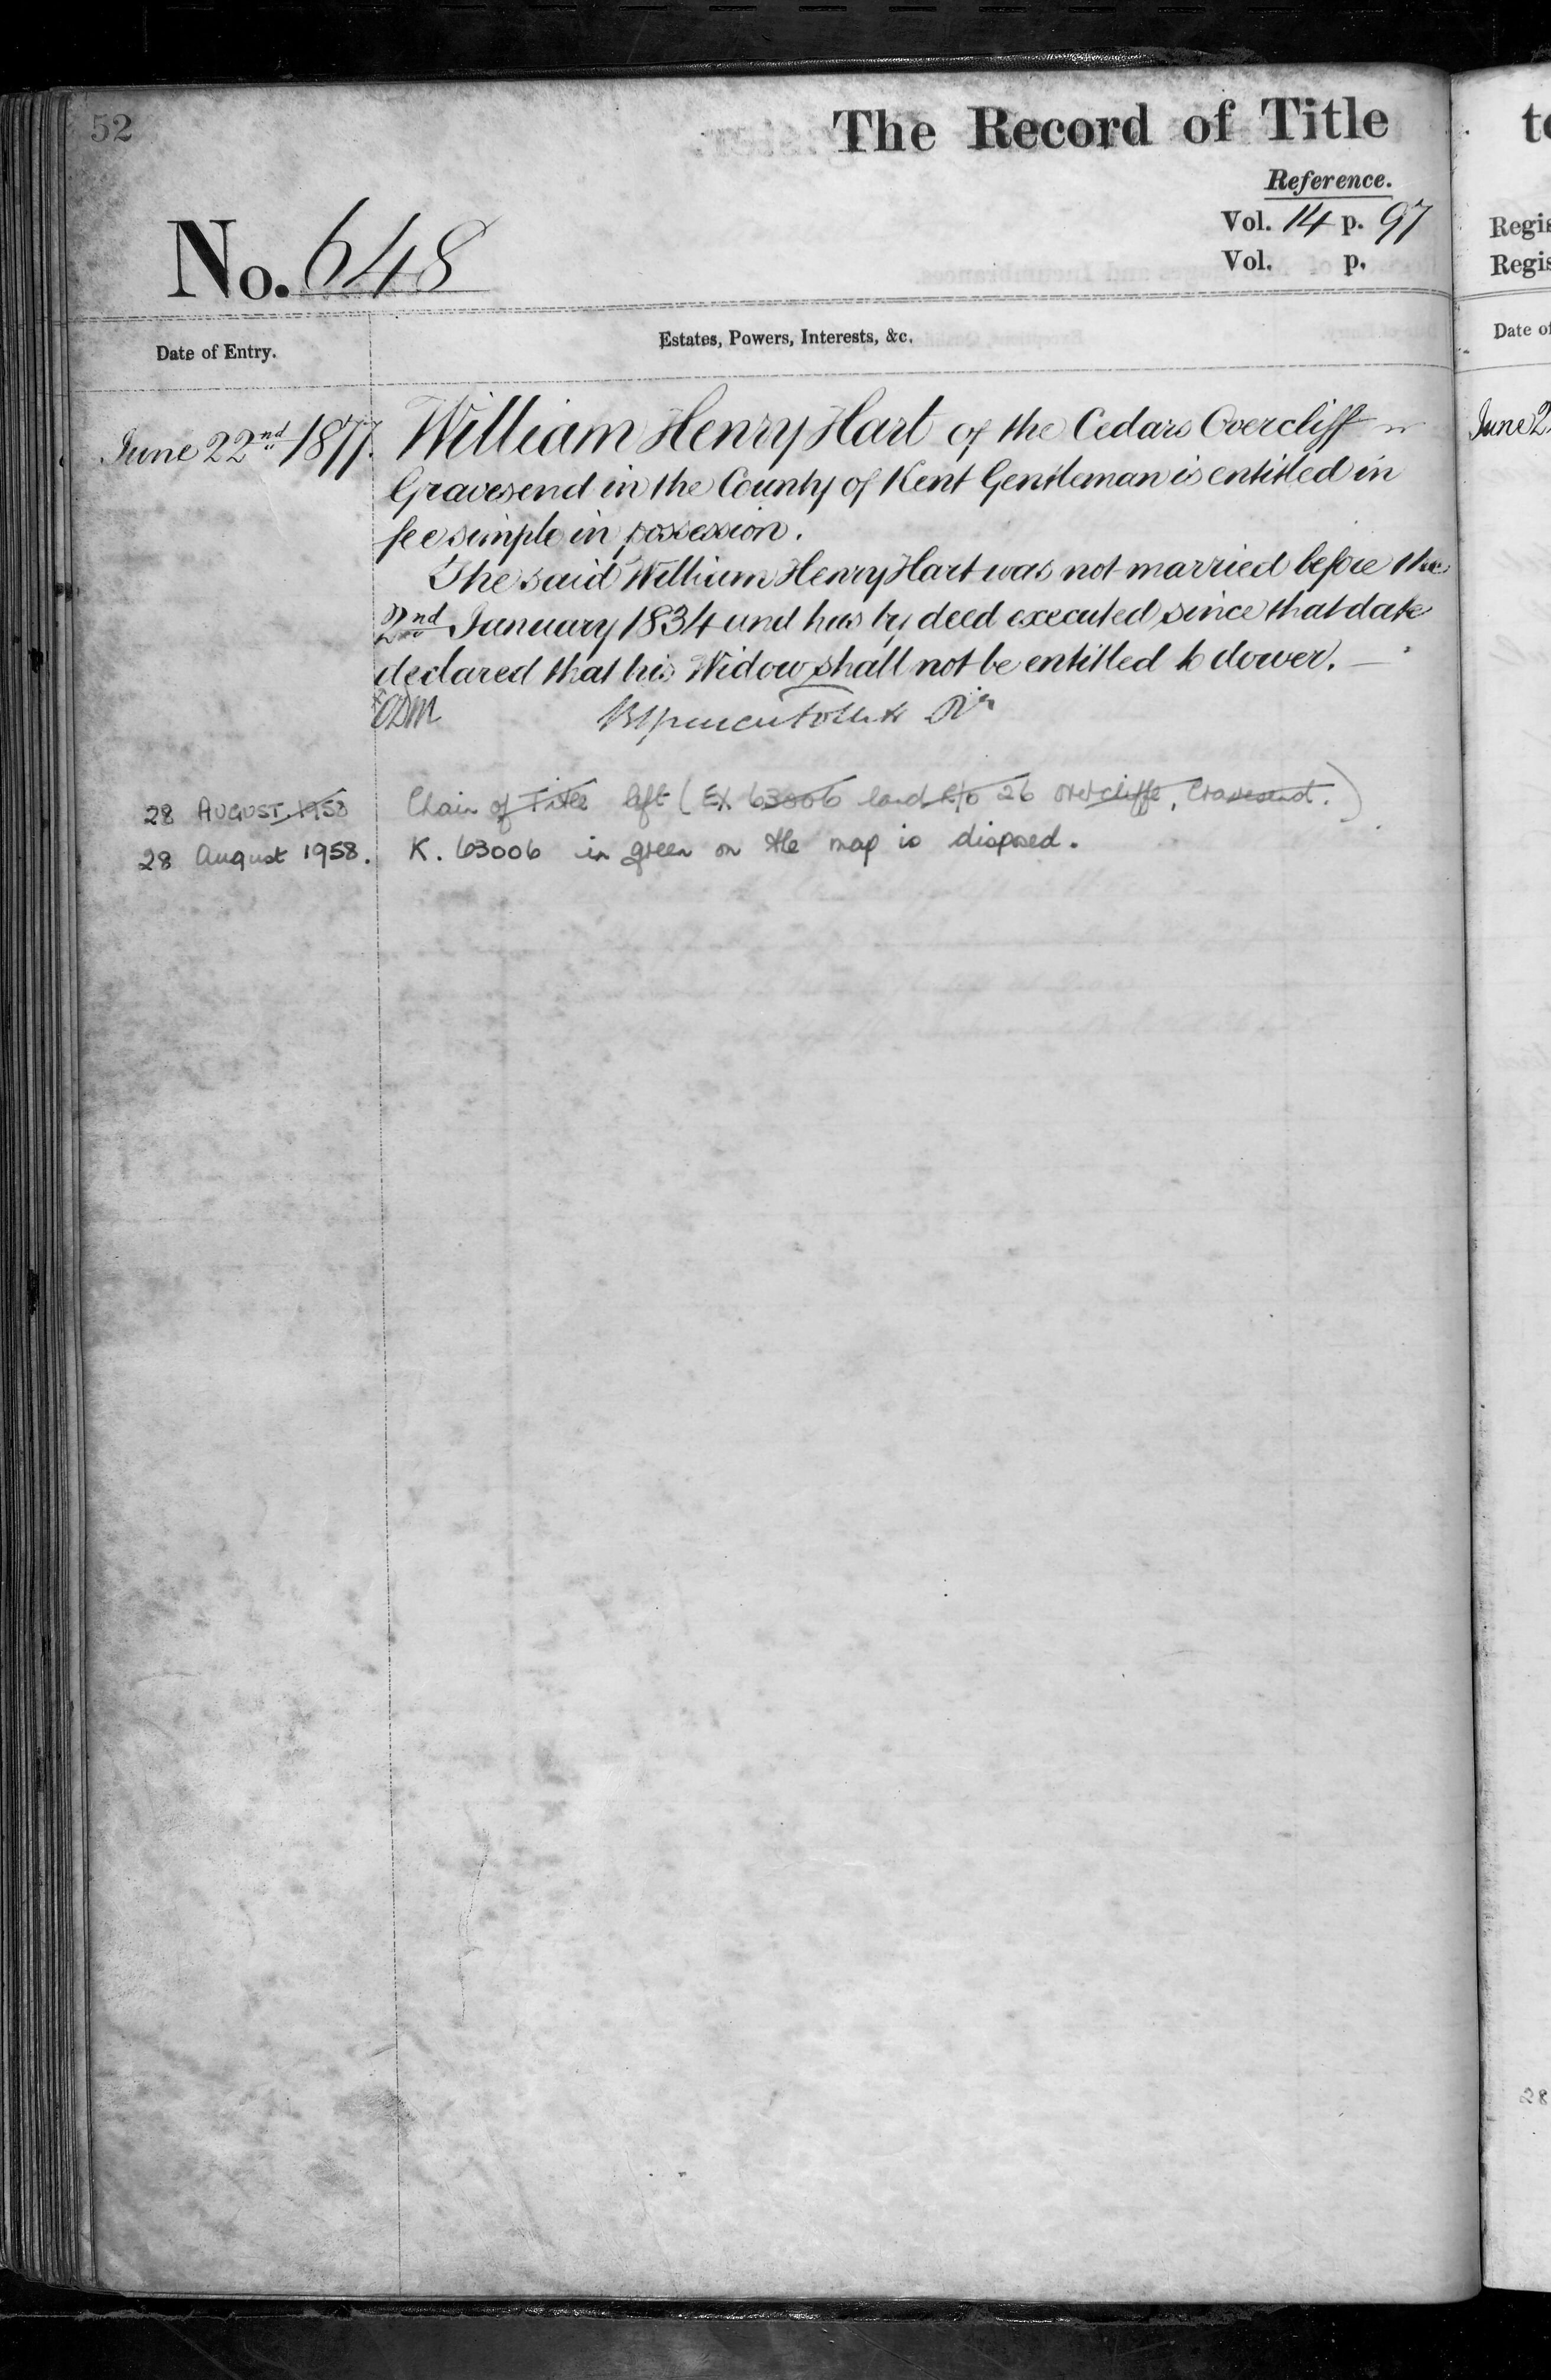 52
The Record of Title
Reference.
No. 648
Vol. 14 p. 97
Vol. p.
Date of Entry.
Estates, Powers, Interests, &c.
June 22nd 1877. William Henry Hart of the Cedars Overcliff
Gravesend in the County of Kent Gentleman is entitled in
fee simple in possession.
The said William Henry Hart was not married before the
2nd January 1834 and has by deed executed since that date
declared that his Widow shall not be entitled to dower.
28 AUGUST 1958 Chain of Title left (Ex 63006 land 26 Overcliffe, Gravesend.)
28 August 1958. K. 63006 in green on the map is disposed.
Regis
Regis
Date of
June 2
28